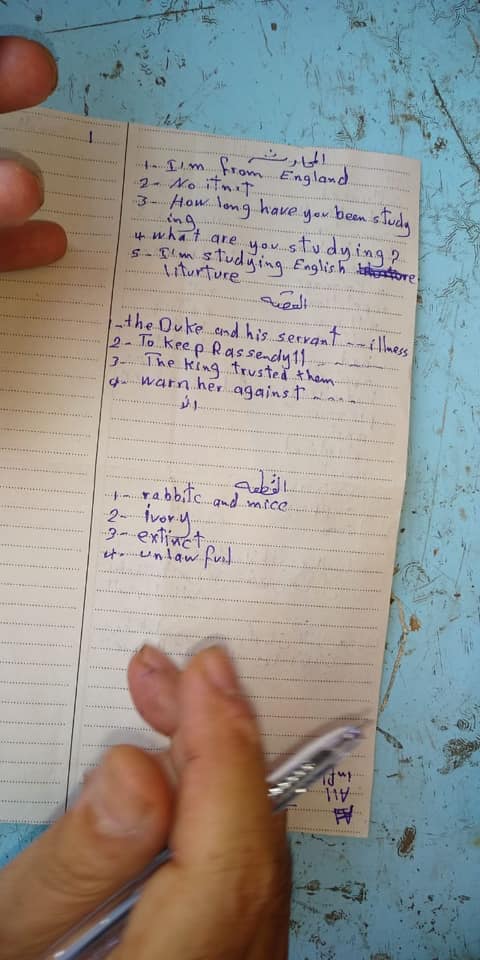 1
المحادثة
1- I'm from England
2- No itn't
3- How long have you been study
ing
4- what are you studying?
5- I'm studying English
liturture
القصة
1- the Duke and his servant --- illness
2- To keep Rassendyll ----
3- The King trusted them
4- warn her against ----
القطعه
1- rabbitc and mice
2- ivory
3- extinct
4- unlawful